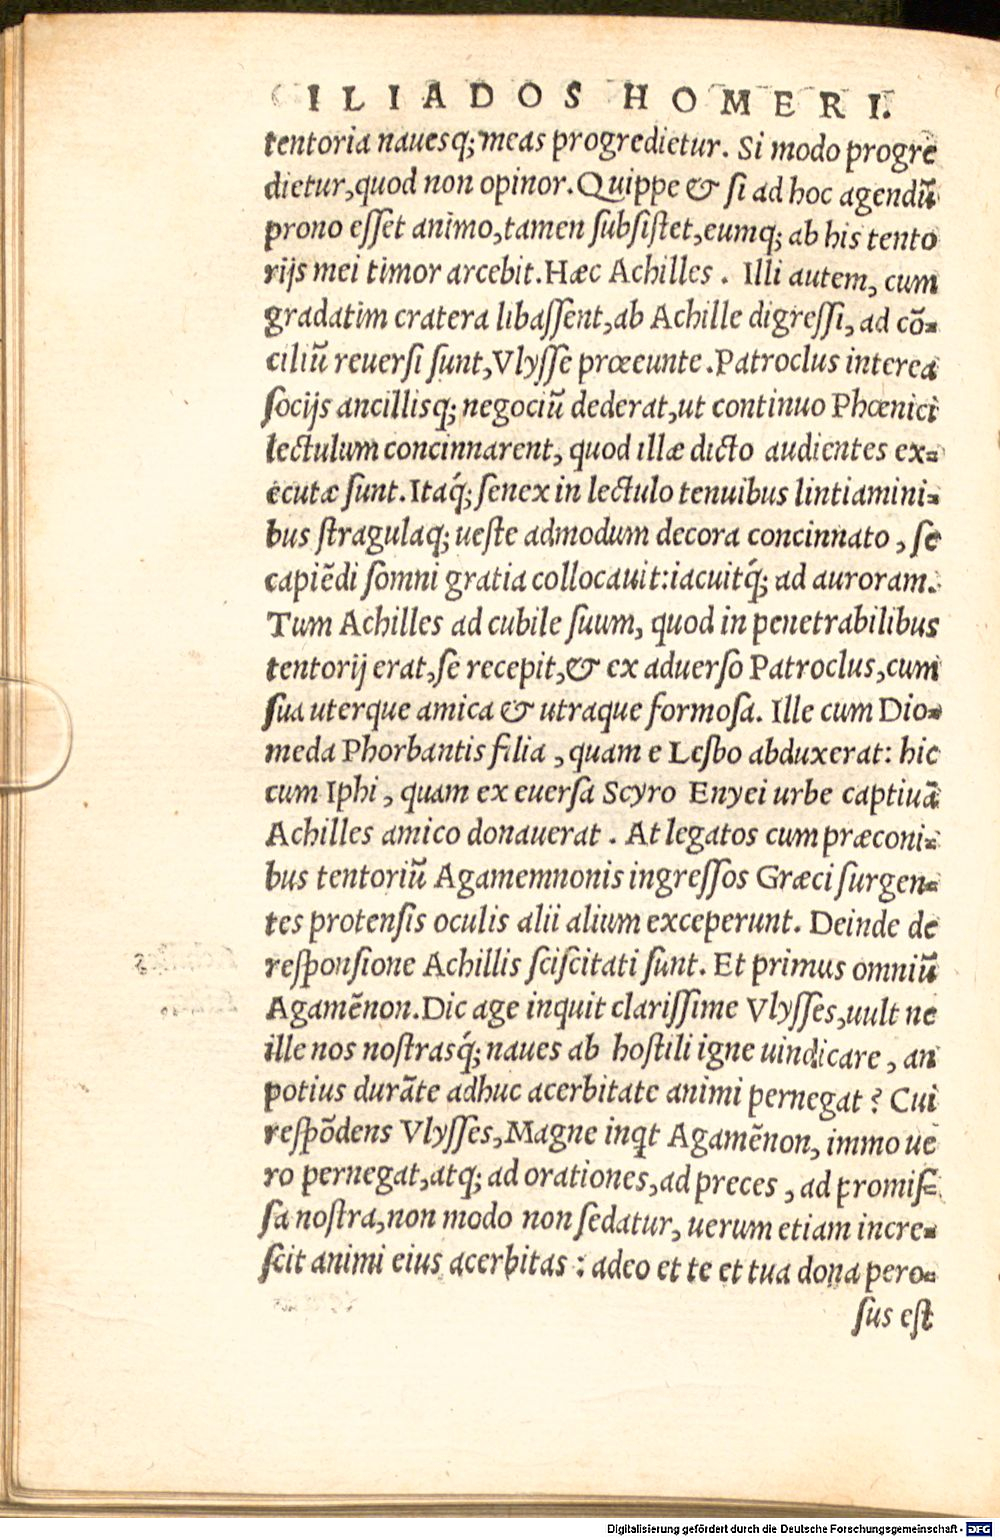 ILIADOS HOMERI.
tentoria nauesq;meas progredietur. Si modo progre
dietur,quod non opinor. Quippe & ſi ad hoc agendũ
prono eſſet animo,tamen ſubſiſtet,eumq; ab his tento
rijs mei timor arcebit. Hæc Achilles . Illi autem, cum
gradatim cratera libaſſent,ab Achille digreſſi, ad cõ=
ciliũ reuerſi ſunt,Vlyſſe prœeunte .Patroclus interea
ſocijs ancillisq; negociũ dederat,ut continuo Phœnici
lectulum concinnarent, quod illæ dicto audientes ex=
ecutæ ſunt. Itaq́; ſenex in lectulo tenuibus lintiamini=
bus ſtragulaq; ueſte admodum decora concinnato , ſe
capiẽdi ſomni gratia collocauit:iacuitq́; ad auroram.
Tum Achilles ad cubile ſuum, quod in penetrabilibus
tentorij erat,ſe recepit,& ex aduerſo Patroclus,cum
ſua uterque amica & utraque formoſa. Ille cum Dio=
meda Phorbantis filia , quam e Lesbo abduxerat: hic
cum Iphi , quam ex euerſa Scyro Enyei urbe captiuã
Achilles amico donauerat . At legatos cum præconi=
bus tentoriũ Agamemnonis ingreſſos Græci ſurgen=
tes protenſis oculis alii alium exceperunt. Deinde de
reſponſione Achillis ſciſcitati ſunt. Et primus omniũ
Agamẽnon. Dic age inquit clariſſime Vlyſſes,uult ne
ille nos noſtrasq́; naues ab hoſtili igne uindicare , an
potius durãte adhuc acerbitate animi pernegat ? Cui
reſpõdens Vlyſſes,Magne inqt Agamẽnon, immo ue
ro pernegat,atq; ad orationes,ad preces , ad promiſ=
ſa noſtra,non modo non ſedatur, uerum etiam incre=
ſcit animi eius acerbitas : adeo et te et tua dona pero=
ſus eſt
Digitalisierung gefördert durch die Deutsche Forschungsgemeinschaft - DFG